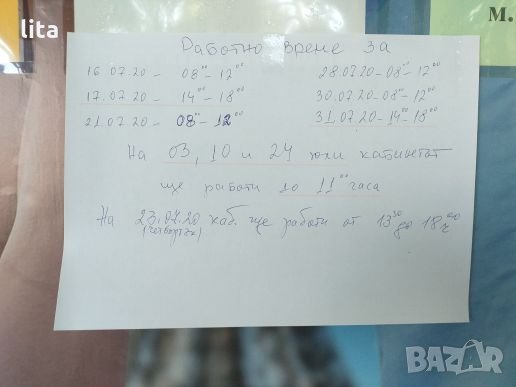 lita
М.
Работно време за
16.07.20 – 08⁰⁰ – 12⁰⁰
28.07.20 – 08⁰⁰ – 12⁰⁰
17.07.20 – 14⁰⁰ – 18⁰⁰
30.07.20 – 08⁰⁰ – 12⁰⁰
21.07.20 – 08⁰⁰ – 12⁰⁰
31.07.20 – 14⁰⁰ – 18⁰⁰
На 03, 10 и 24 юли кабинетът
ще работи до 11⁰⁰ часа
На 23.07.20 каб. ще работи от 13³⁰ до 18⁰⁰ ч
(четвъртък)
BAZAR